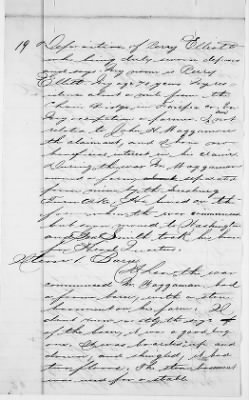 19 Deposition of Perry Elliott
who being duly sworn deposes
and says: My name is Perry
Elliott my age 71 years. My res-
idence about a mile from the
Chain Bridge, in Fairfax Co. Va.
My occupation a farmer. I am not
related to John H. Waggaman
the claimant, and have no
beneficial interest in his claim.
During the war Mr. Waggaman
owned a farm separated
from mine by the Leesburg
Turnpike. He lived on the
farm when the war commenced
but soon moved to Washington
and Genl. Smith took his house
for Head Quarters.
Item 1. Barn
When the war
commenced Mr. Waggaman had
a frame barn, with a stone
basement on his farm. I
dont now recollect the size
of the barn, it was a good big
one. It was boarded up and
down, and shingled, it had
two floors. The stone basement
was used for a stable